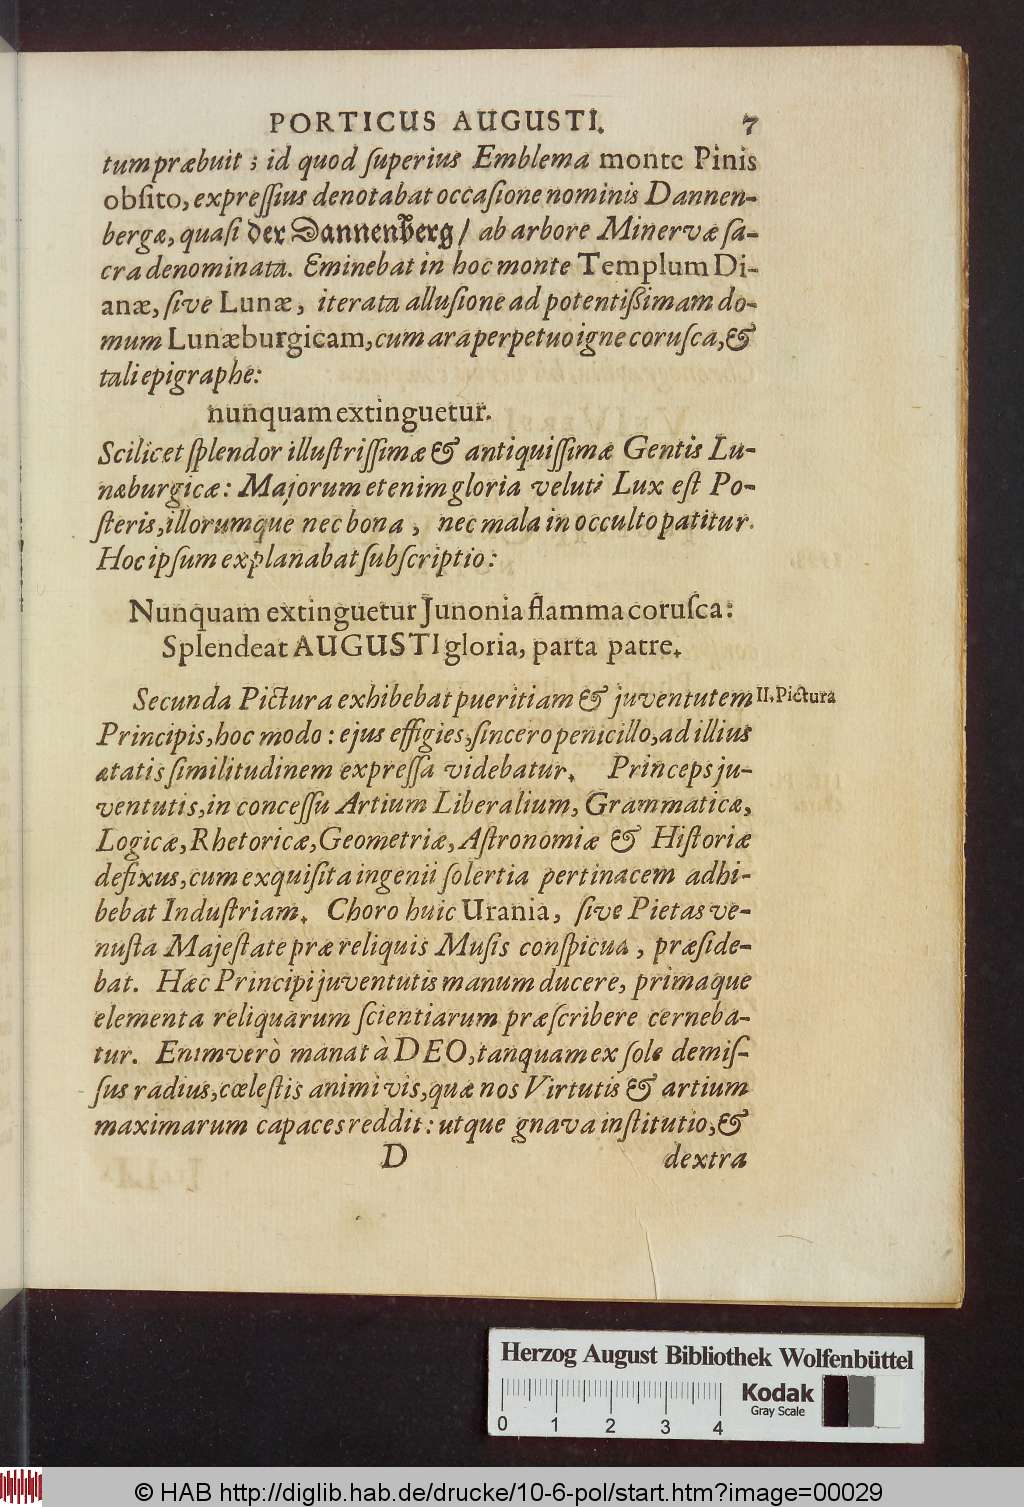 PORTICUS AUGUSTI. 7
tum præbuit ; id quod ſuperius Emblema monte Pinis
obſito, expreſſius denotabat occaſione nominis Dannen-
bergæ, quaſi der Dannenberg / ab arbore Minervæ ſa-
cra denominata. Eminebat in hoc monte Templum Di-
anæ, ſive Lunæ, iterata alluſione ad potentiſſimam do-
mum Lunæburgicam, cum ara perpetuo igne coruſca, &
tali epigraphe:
nunquam extinguetur.
Scilicet ſplendor illuſtriſſimæ & antiquiſſimæ Gentis Lu-
næburgicæ: Majorum etenim gloria veluti Lux eſt Po-
ſteris, illorumque nec bona , nec mala in occulto patitur.
Hoc ipſum explanabat ſubſcriptio:
Nunquam extinguetur Junonia flamma coruſca:
Splendeat AUGUSTI gloria, parta patre.
Secunda Pictura exhibebat pueritiam & juventutem II. Pictura
Principis, hoc modo: ejus effigies, ſincero penicillo, ad illius
ætatis ſimilitudinem expreſſa videbatur. Princeps ju-
ventutis, in conceſſu Artium Liberalium, Grammaticæ,
Logicæ, Rhetoricæ, Geometriæ, Aſtronomiæ & Hiſtoriæ
defixus, cum exquiſita ingenii ſolertia pertinacem adhi-
bebat Induſtriam. Choro huic Urania, ſive Pietas ve-
nuſta Majeſtate præ reliquis Muſis conſpicua , præſide-
bat. Hæc Principi juventutis manum ducere, primaque
elementa reliquarum ſcientiarum præſcribere cerneba-
tur. Enimverò manat à DEO, tanquam ex ſole demiſ-
ſus radius, cœleſtis animi vis, quæ nos Virtutis & artium
maximarum capaces reddit: utque gnava inſtitutio, &
D dextra
Herzog August Bibliothek Wolfenbüttel
Kodak
Gray Scale
0 1 2 3 4
© HAB http://diglib.hab.de/drucke/10-6-pol/start.htm?image=00029